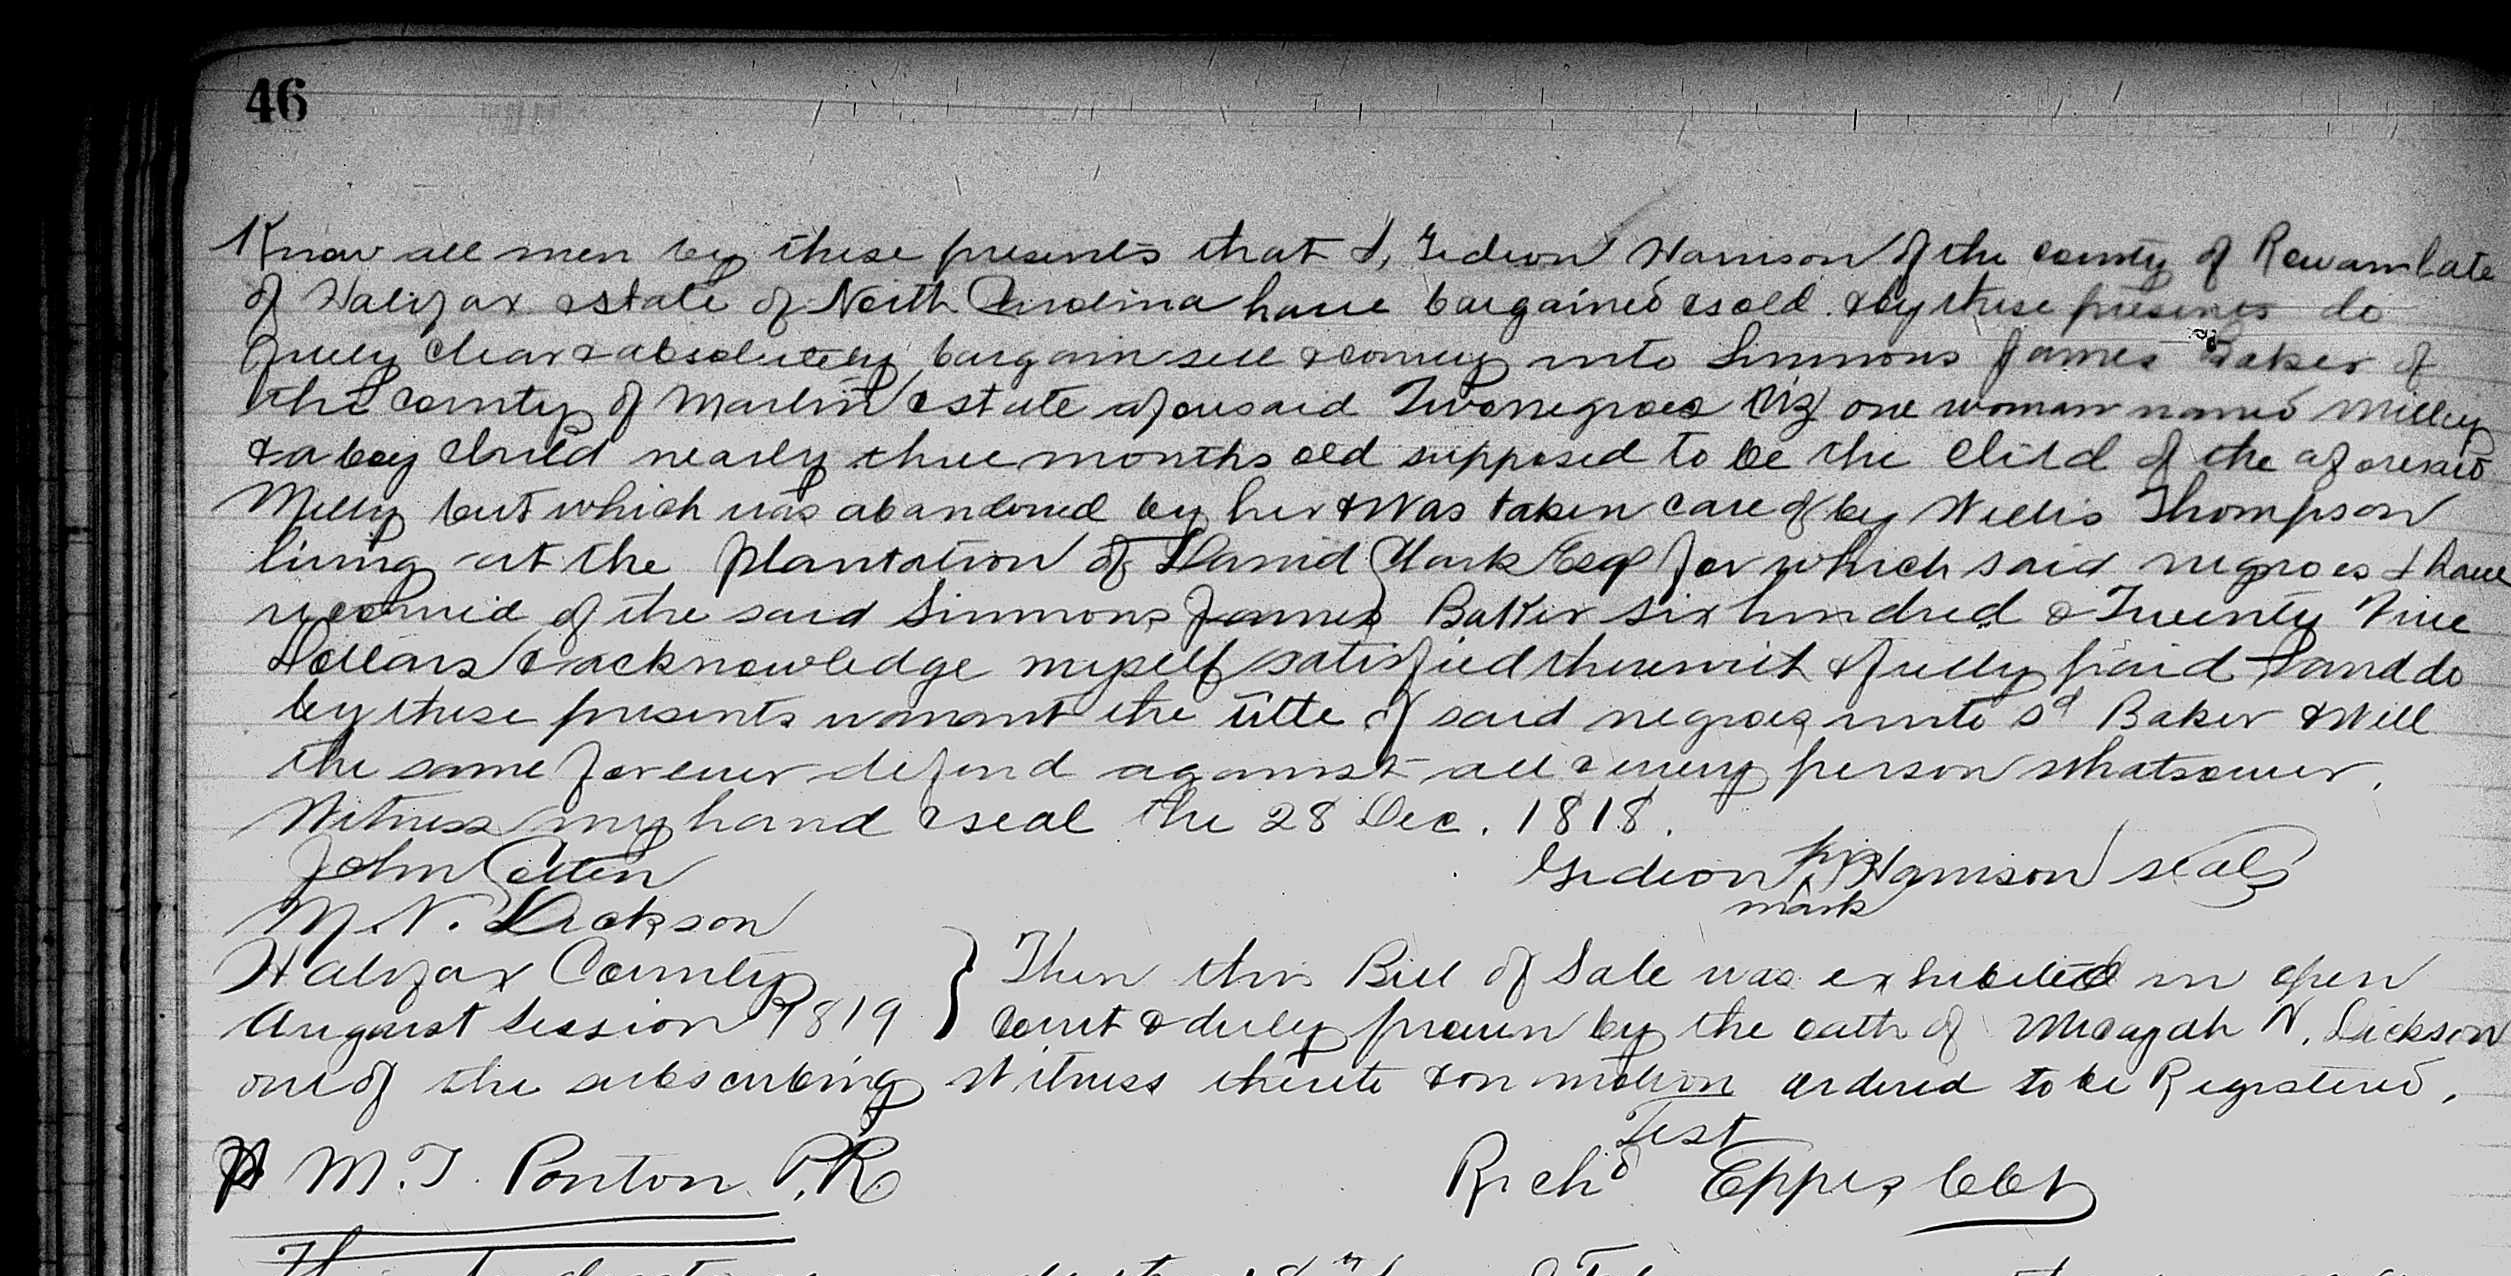 46
Know all men by these presents that I, Gedion Harrison of the county of Rowan late
of Halifax & state of North Carolina have bargained & sold & by these presents do
fully clear & absolutely bargain sell & convey unto Simmons James Baker of
the county of Martin & state aforesaid Two negroes viz one woman named Milly
& a boy child nearly three months old supposed to be the child of the aforesaid
Milly but which was abandoned by her & was taken care of by Willis Thompson
living at the plantation of David Clark Esqr for which said negroes I have
received of the said Simmons James Baker six hundred & Twenty Five
Dollars & acknowledge myself satisfied therewith & fully paid I and do
by these presents warrant the title of said negroes unto sd Baker & Will
the same forever defend against all & every person whatsoever.
Witness my hand & seal the 28 Dec. 1818.
John Cotten
Gedion his Harrison seal
mark
M. N. Dickson
Halifax County } Then this Bill of Sale was exhibited in open
August Session 1819 } court & duly proven by the oath of Micajah N. Dickson
one of the subscribing Witness thereto & on motion ordered to be Registered.
Test
M. T. Ponton P.R.
Richd Eppes Clk